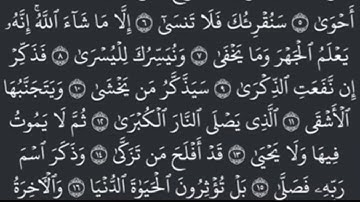 أَحْوَىٰ ۝٥ سَنُقْرِئُكَ فَلَا تَنسَىٰٓ ۝٦ إِلَّا مَا شَآءَ ٱللَّهُ ۚ إِنَّهُۥ
يَعْلَمُ ٱلْجَهْرَ وَمَا يَخْفَىٰ ۝٧ وَنُيَسِّرُكَ لِلْيُسْرَىٰ ۝٨ فَذَكِّرْ
إِن نَّفَعَتِ ٱلذِّكْرَىٰ ۝٩ سَيَذَّكَّرُ مَن يَخْشَىٰ ۝١٠ وَيَتَجَنَّبُهَا
ٱلْأَشْقَى ۝١١ ٱلَّذِى يَصْلَى ٱلنَّارَ ٱلْكُبْرَىٰ ۝١٢ ثُمَّ لَا يَمُوتُ
فِيهَا وَلَا يَحْيَىٰ ۝١٣ قَدْ أَفْلَحَ مَن تَزَكَّىٰ ۝١٤ وَذَكَرَ ٱسْمَ
رَبِّهِۦ فَصَلَّىٰ ۝١٥ بَلْ تُؤْثِرُونَ ٱلْحَيَوٰةَ ٱلدُّنْيَا ۝١٦ وَٱلْءَاخِرَةُ